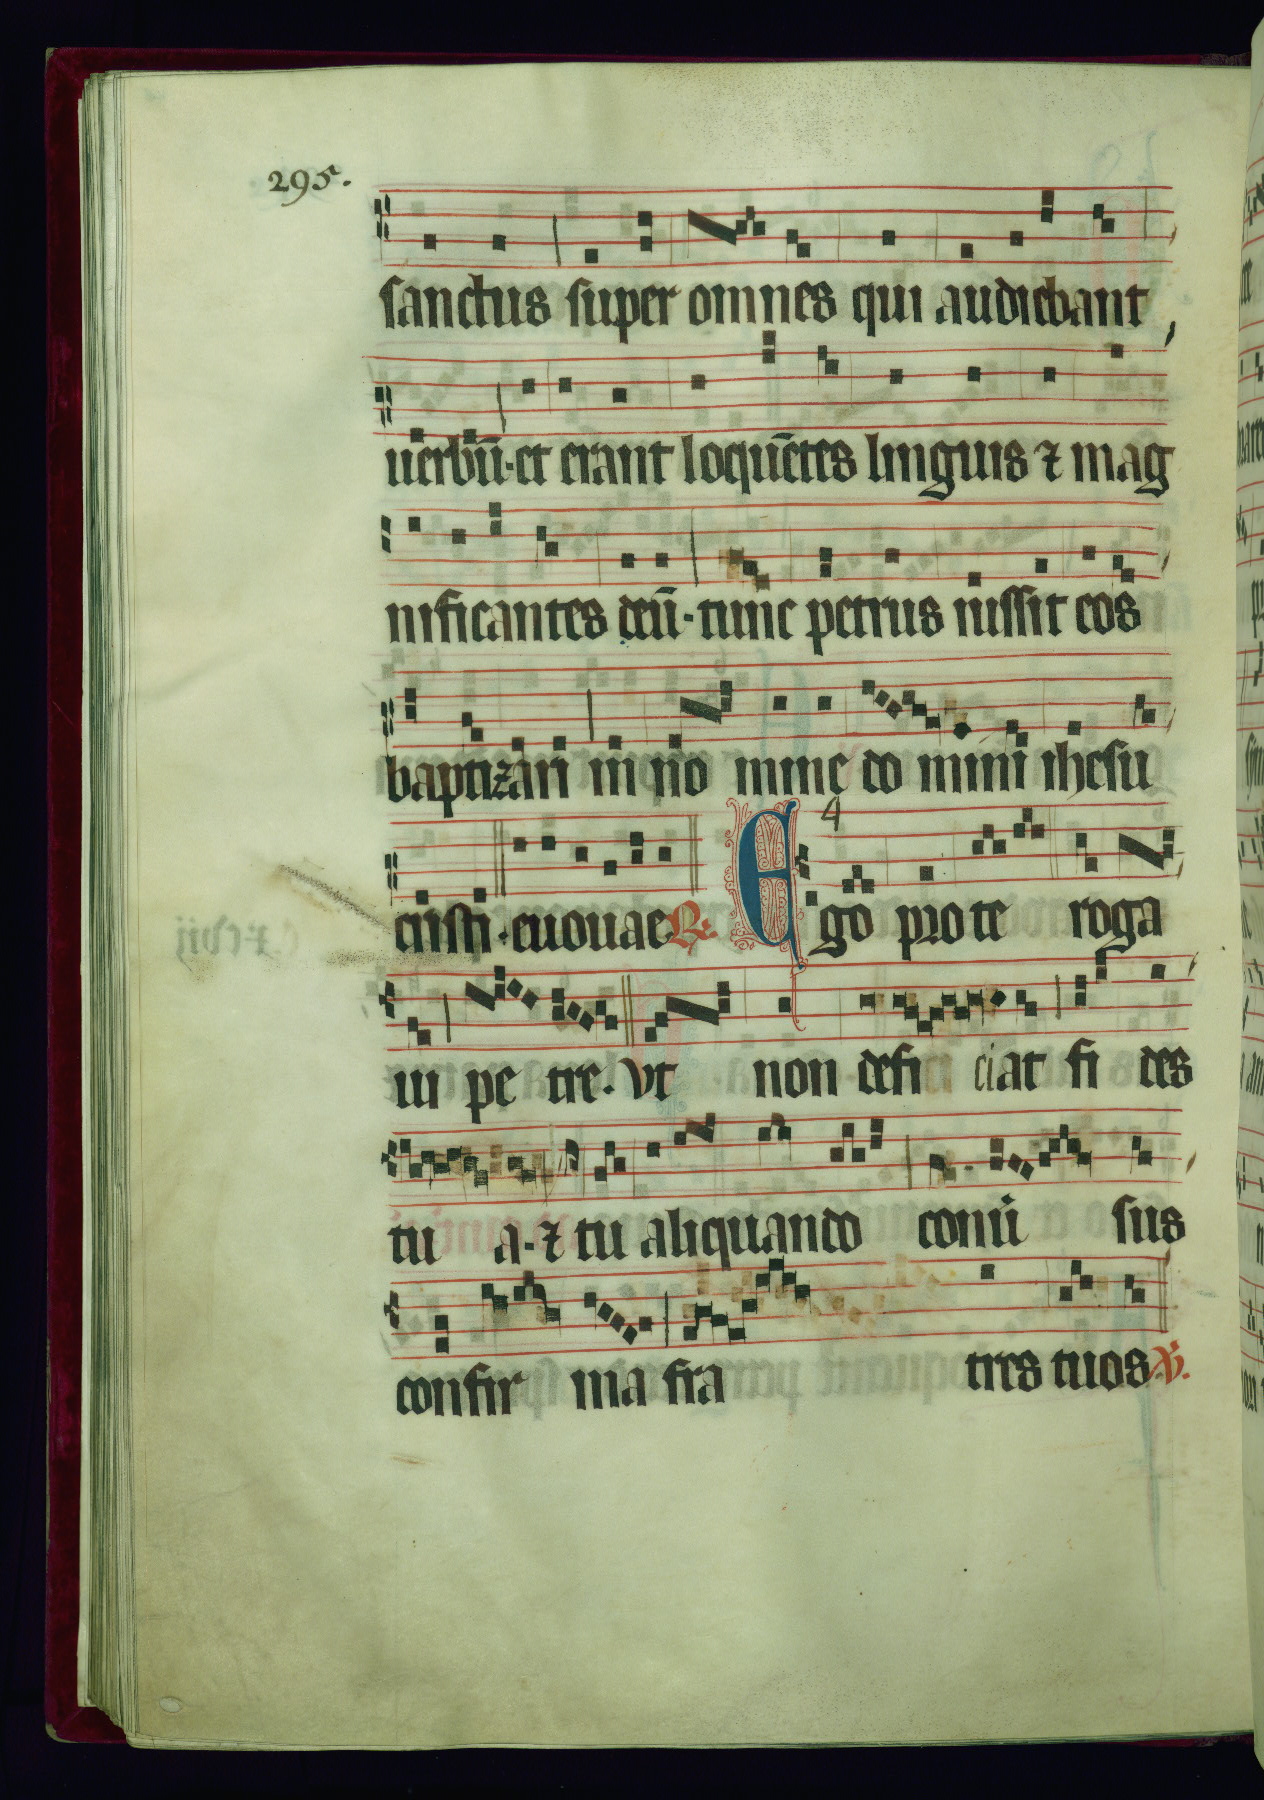 295.
sanctus super omnes qui audiebant
uerbū·et erant loquētes linguis ⁊ mag
nificantes deū·tunc petrus iussit eos
baptizari in no mine do mini ihesu
cristi·euouae ℟. 4 Ego pro te roga
ui pe tre. vt non defi ciat fi des
tu a·⁊ tu aliquando conu̅ sus
confir ma fra tres tuos ℣.